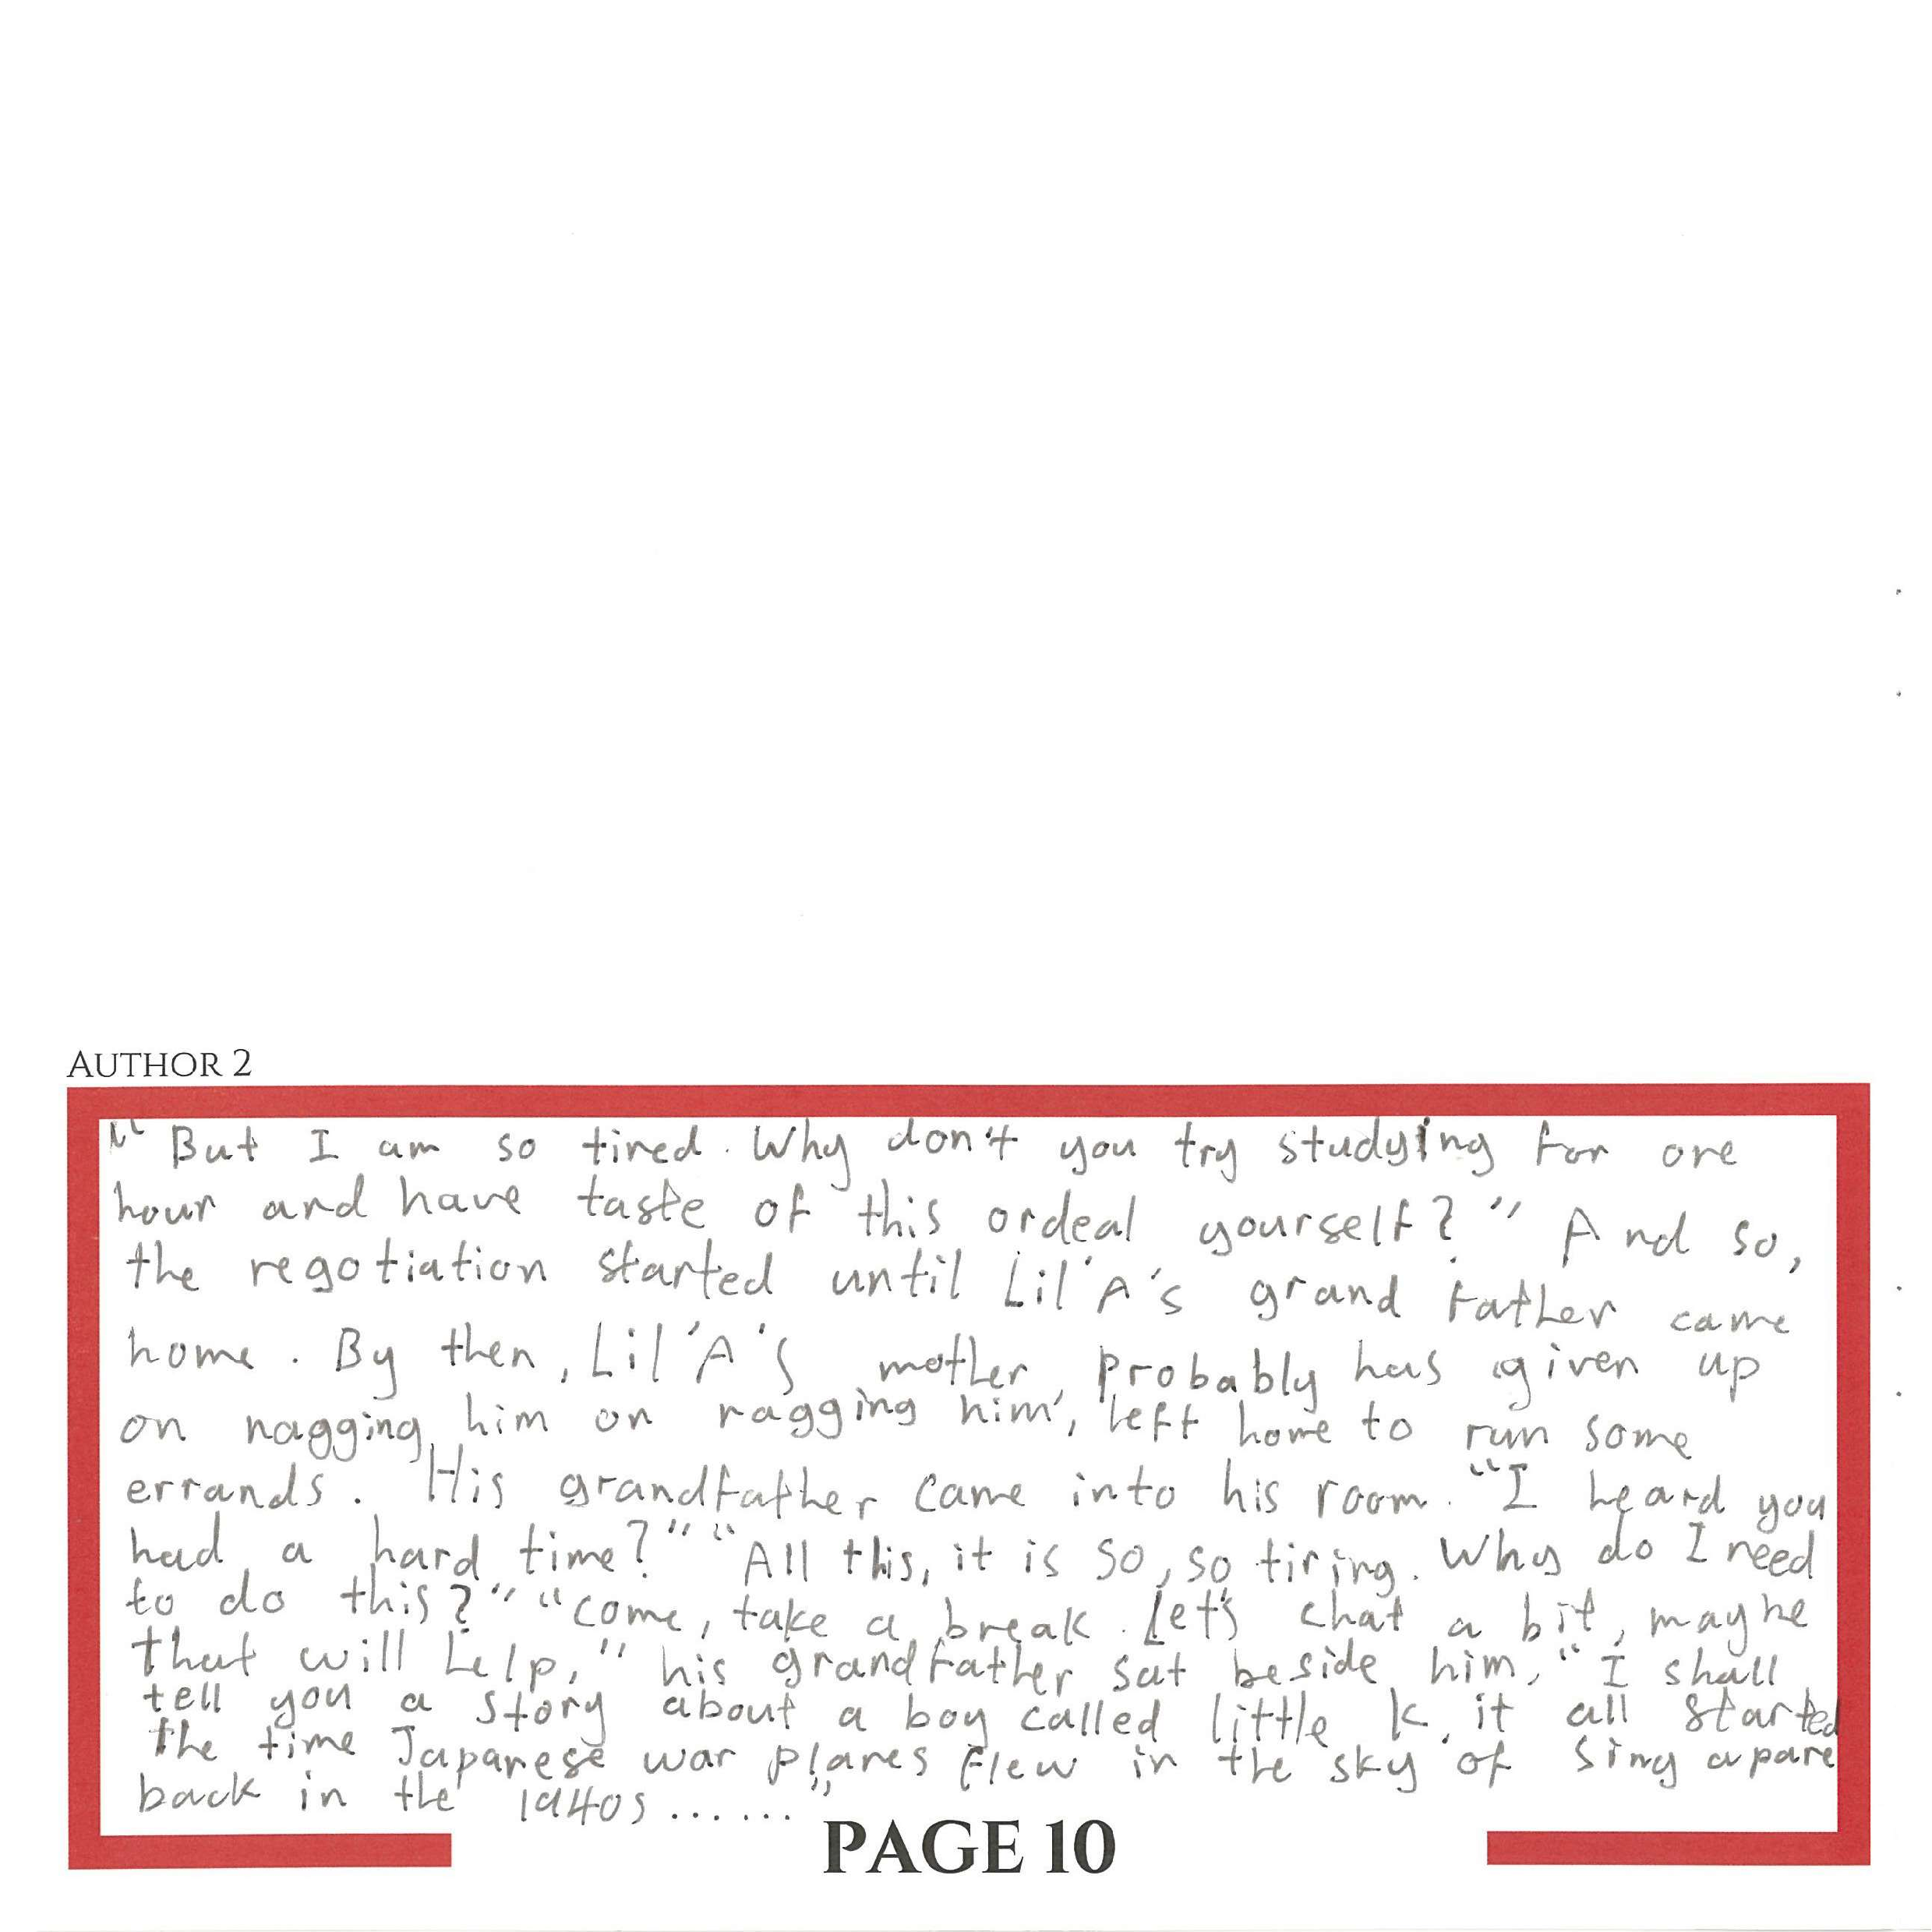 AUTHOR 2
"But I am so tired. Why don't you try studying for one
hour and have taste of this ordeal yourself?" And so,
the negotiation started until Lil'A's grandfather came
home. By then, Lil'A's mother, probably has given up
on nagging him on nagging him, left home to run some
errands. His grandfather came into his room. "I heard you
had a hard time?" "All this, it is so, so tiring. Why do I need
to do this?" "Come, take a break. Let's chat a bit, maybe
that will help," his grandfather sat beside him, "I shall
tell you a story about a boy called little K, it all started
the time Japanese war planes flew in the sky of Singapore
back in the 1940s......"
PAGE 10